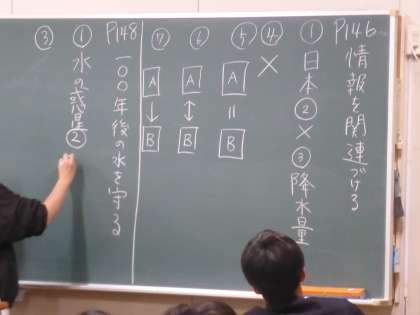 P146 情報を関連づける
① 日本 ② × ③ 降水量
④ ×
⑤ A = B
⑥ A ↔ B
⑦ A → B
P148 一〇〇年後の水を守る
① 水の惑星 ②
③